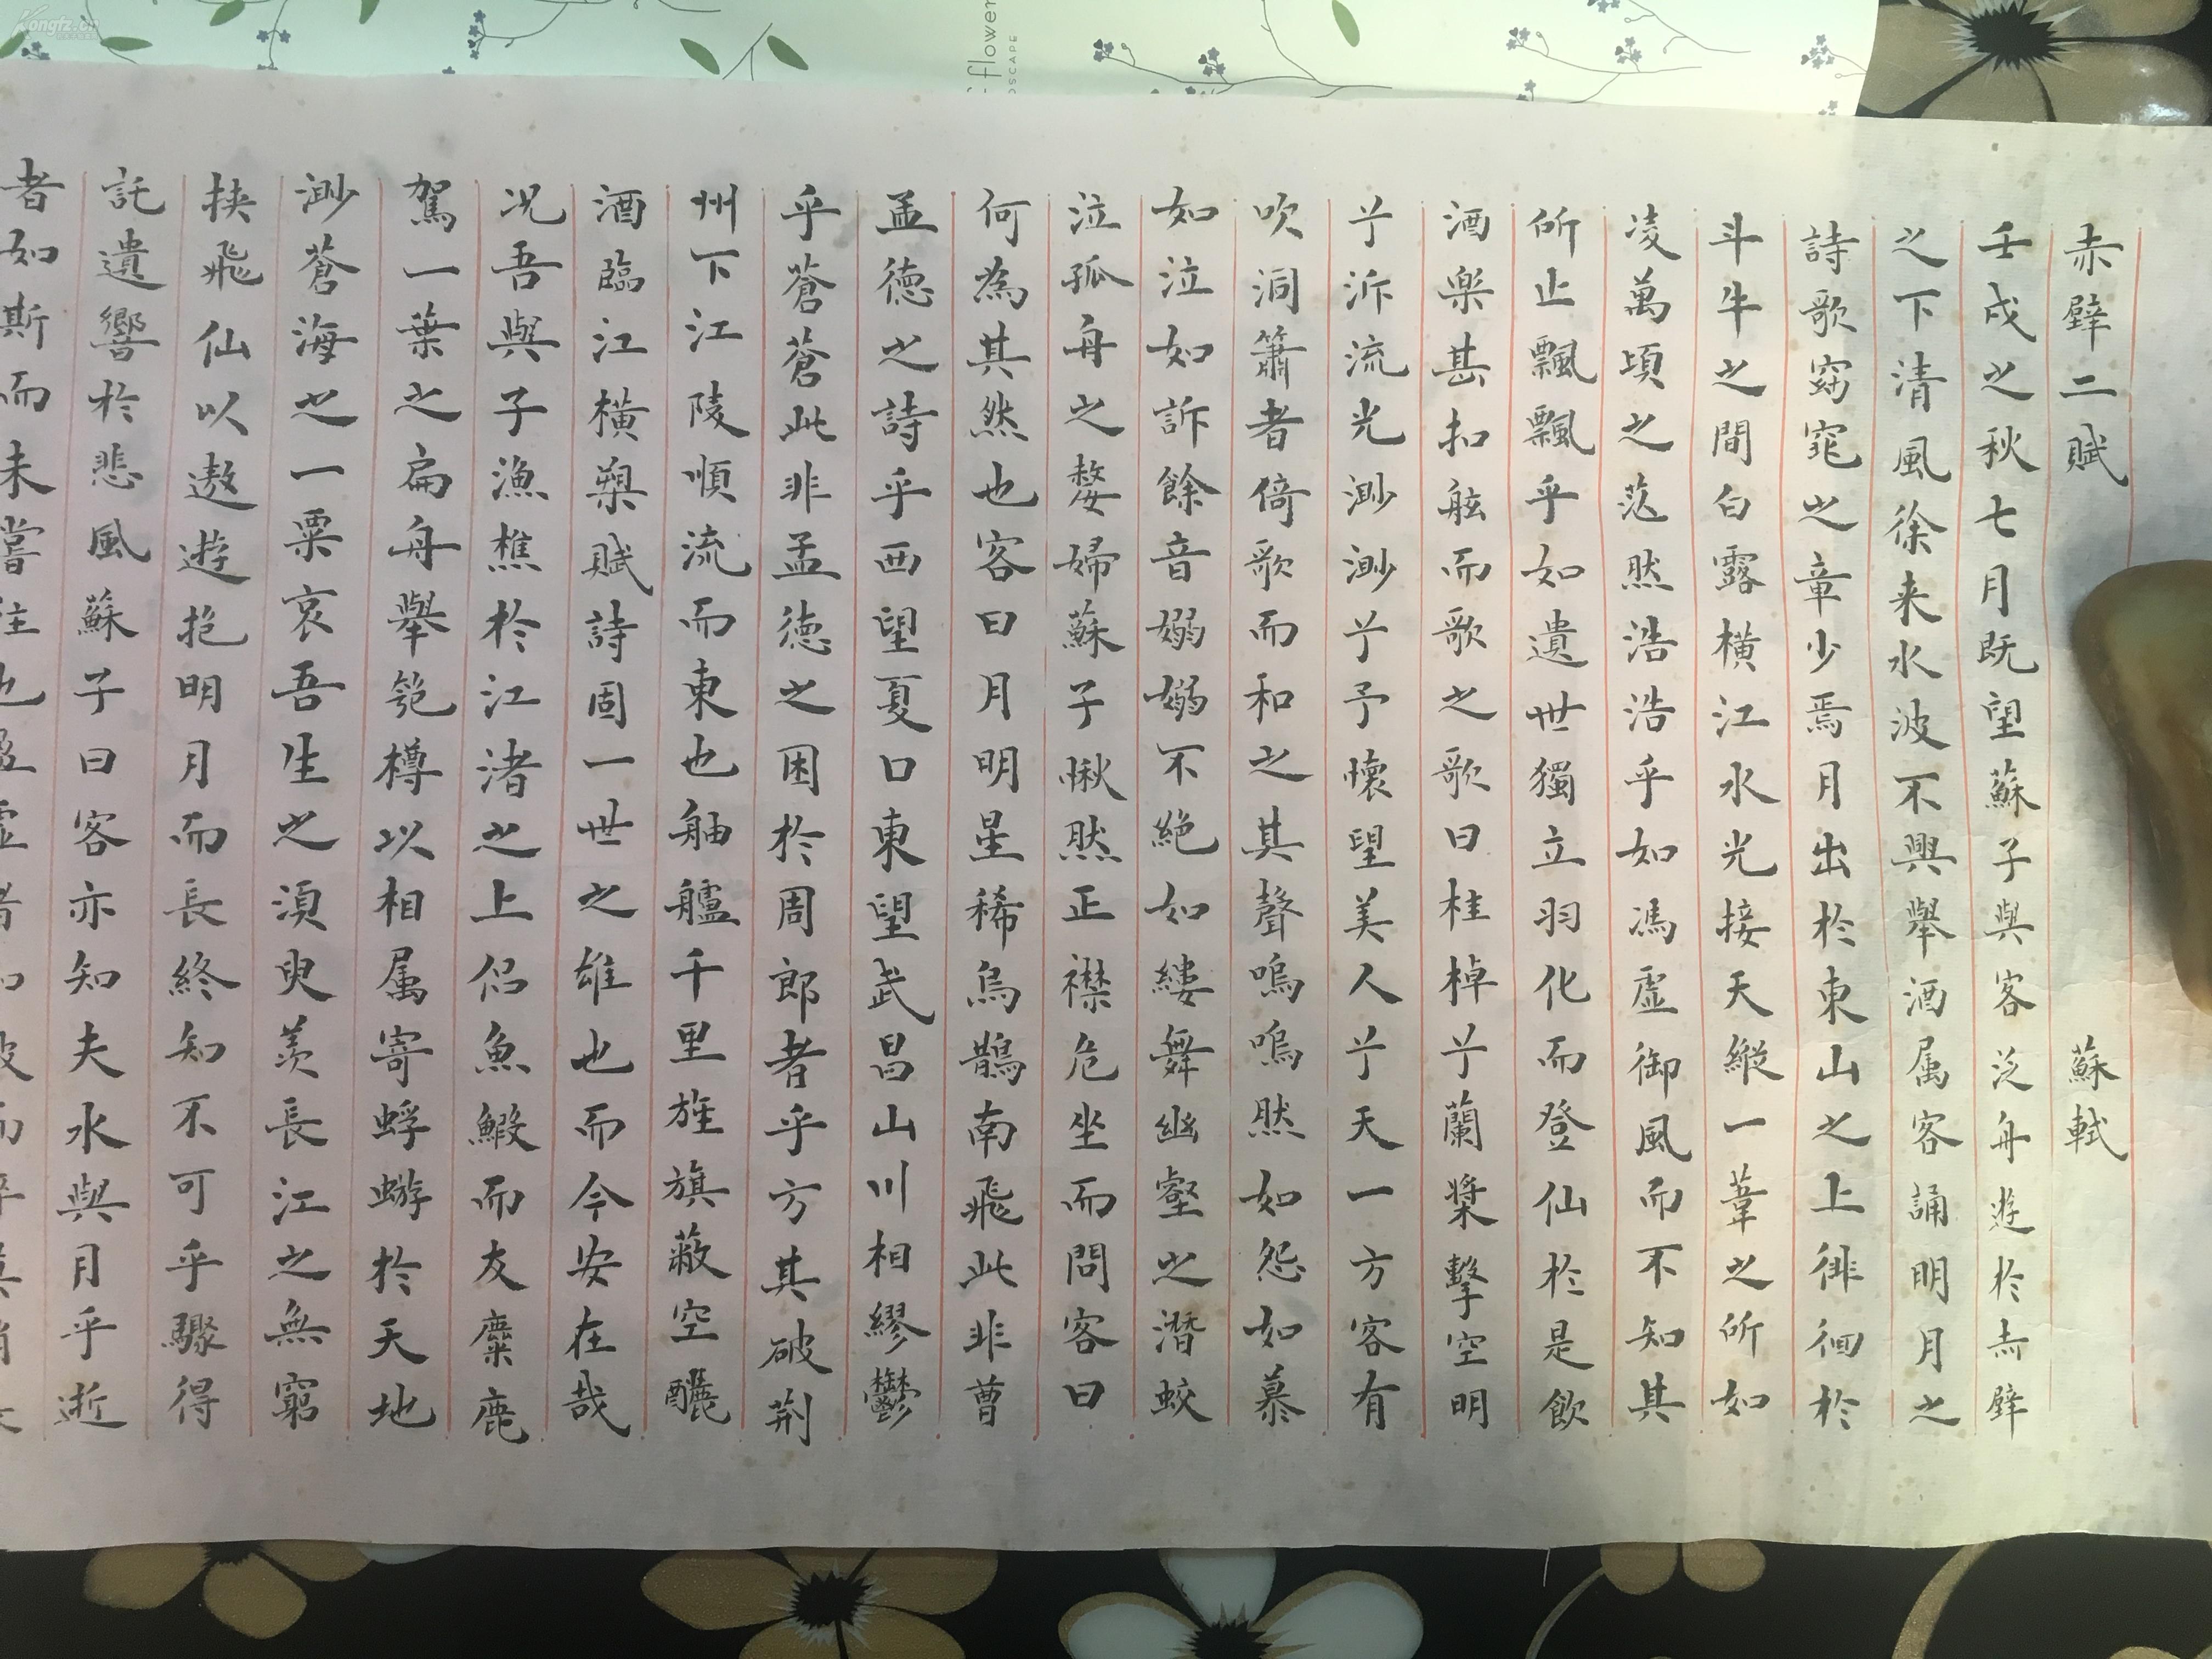 赤壁二賦 蘇軾
壬戌之秋七月既望蘇子與客泛舟遊於赤壁
之下清風徐来水波不興舉酒属客誦明月之
詩歌窈窕之章少焉月出於東山之上徘徊於
斗牛之間白露横江水光接天縱一葦之所如
凌萬頃之茫然浩浩乎如馮虛御風而不知其
所止飄飄乎如遺世獨立羽化而登仙於是飲
酒楽甚扣舷而歌之歌曰桂棹兮蘭槳擊空明
兮泝流光渺渺兮予懷望美人兮天一方客有
吹洞簫者倚歌而和之其聲嗚嗚然如怨如慕
如泣如訴餘音嫋嫋不絶如縷舞幽壑之潛蛟
泣孤舟之嫠婦蘇子愀然正襟危坐而問客曰
何為其然也客曰月明星稀烏鵲南飛此非曹
孟德之詩乎西望夏口東望武昌山川相繆鬱
乎蒼蒼此非孟德之困於周郎者乎方其破荆
州下江陵順流而東也舳艫千里旌旗蔽空釃
酒臨江横槊賦詩固一世之雄也而今安在哉
况吾與子漁樵於江渚之上侣魚鰕而友麋鹿
駕一葉之扁舟舉匏樽以相属寄蜉蝣於天地
渺蒼海之一粟哀吾生之須臾羡長江之無窮
挟飛仙以遨遊抱明月而長終知不可乎驟得
託遺響於悲風蘇子曰客亦知夫水與月乎逝
者如斯而未嘗往也盈虛者如彼而卒莫消
flower
Kongfz.cn